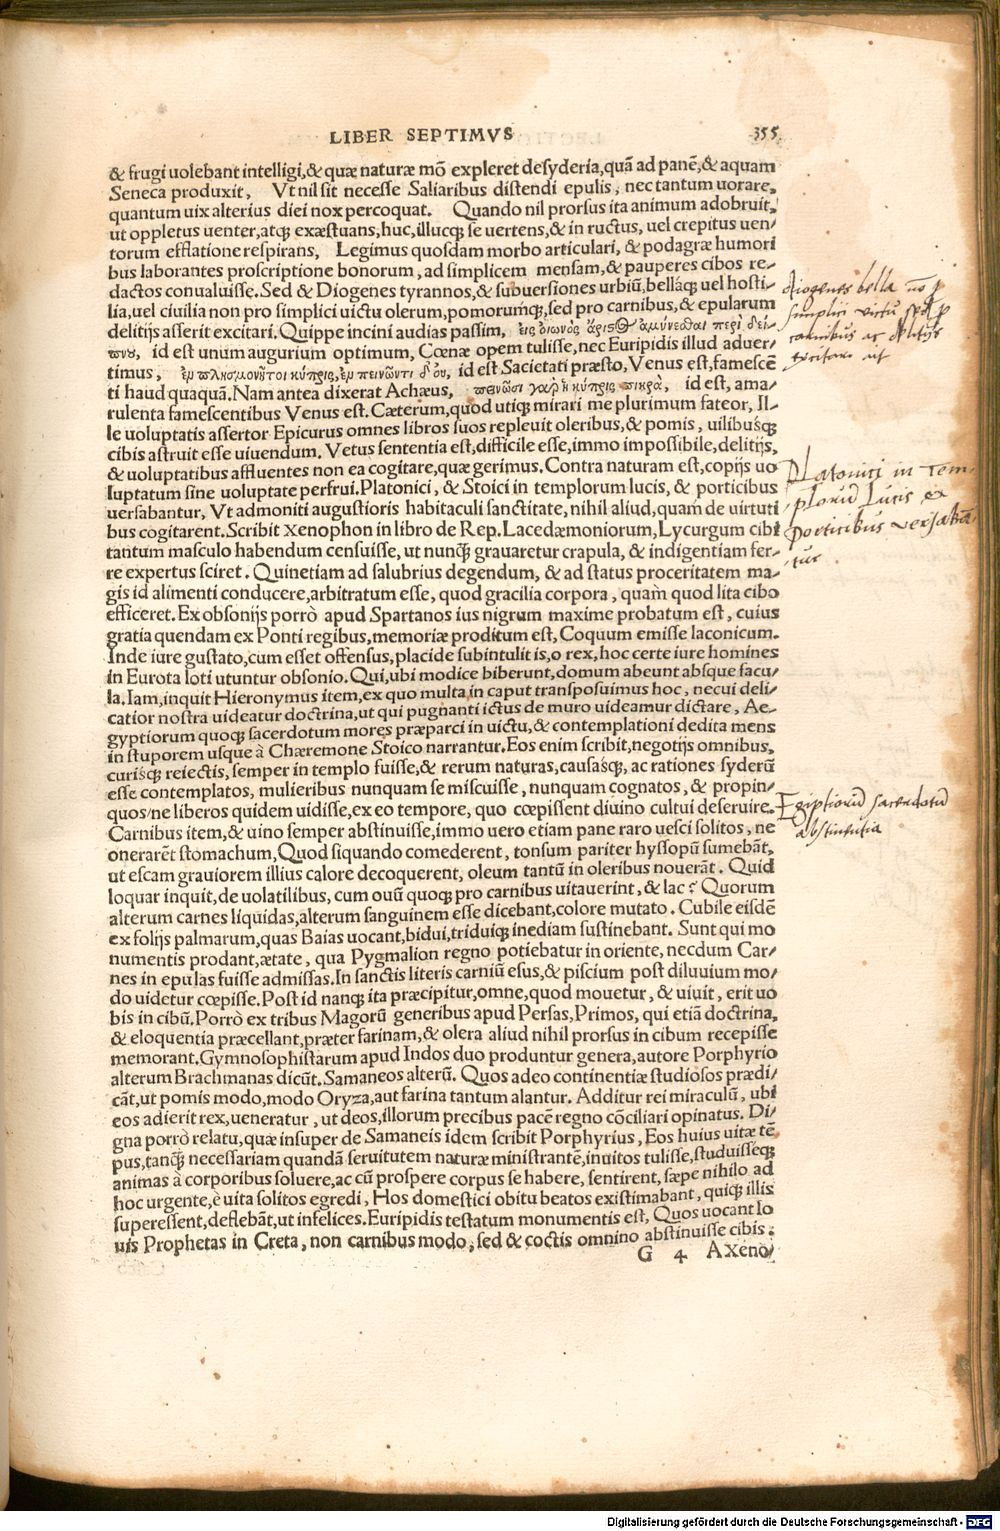 LIBER SEPTIMVS 355
& frugi uolebant intelligi,& quæ naturæ mō expleret desyderia,quā ad panē,& aquam
Seneca produxit, Vt nil sit necesse Saliaribus distendi epulis, nec tantum uorare,
quantum uix alterius diei nox percoquat. Quando nil prorsus ita animum adobruit,
ut oppletus uenter,atq; exæstuans,huc,illucq; se uertens,& in ructus, uel crepitus uen/
torum efflatione respirans, Legimus quosdam morbo articulari, & podagræ humori
bus laborantes proscriptione bonorum, ad simplicem mensam,& pauperes cibos re/
dactos conualuisse.Sed & Diogenes tyrannos,& subuersiones urbiū,bellaq; uel hosti/
lia,uel ciuilia non pro simplici uictu olerum,pomorumq;,sed pro carnibus,& epularum
delitijs asserit excitari.Quippe incini audias passim, εἷς οἰωνὸς ἄριστος ἀμύνεσθαι περὶ δεί/
πνου, id est unum augurium optimum, Cœnæ opem tulisse,nec Euripidis illud aduer/
timus, ἐν πλησμονῇ τοι κύπρις,ἐν πεινῶντι δ' οὐ, id est Sacietati præsto,Venus est,famescē
ti haud quaquā.Nam antea dixerat Achæus, πεινῶσι γαρ ἡ κύπρις πικρά, id est, ama/
rulenta famescentibus Venus est.Cæterum,quod utiq; mirari me plurimum fateor, Il/
le uoluptatis assertor Epicurus omnes libros suos repleuit oleribus,& pomis, uilibusq;
cibis astruit esse uiuendum. Vetus sententia est,difficile esse,immo impossibile,delitijs,
& uoluptatibus affluentes non ea cogitare,quæ gerimus.Contra naturam est,copijs uo
luptatum sine uoluptate perfrui.Platonici, & Stoici in templorum lucis, & porticibus
uersabantur, Vt admoniti augustioris habitaculi sanctitate, nihil aliud,quam de uirtuti
bus cogitarent.Scribit Xenophon in libro de Rep.Lacedæmoniorum,Lycurgum cibi
tantum masculo habendum censuisse, ut nunq̄ grauaretur crapula, & indigentiam fer/
re expertus sciret. Quinetiam ad salubrius degendum, & ad status proceritatem ma/
gis id alimenti conducere,arbitratum esse, quod gracilia corpora, quàm quod lita cibo
efficeret.Ex obsonijs porrò apud Spartanos ius nigrum maxime probatum est, cuius
gratia quendam ex Ponti regibus,memoriæ proditum est,Coquum emisse laconicum.
Inde iure gustato,cum esset offensus,placide subintulit is,o rex,hoc certe iure homines
in Eurota loti utuntur obsonio.Qui,ubi modice biberunt,domum abeunt absque facu/
la.Iam,inquit Hieronymus item,ex quo multa in caput transposuimus hoc, necui deli/
catior nostra uideatur doctrina,ut qui pugnanti ictus de muro uideamur dictare, Ae/
gyptiorum quoq; sacerdotum mores præparci in uictu,& contemplationi dedita mens
in stuporem usque à Chæremone Stoico narrantur.Eos enim scribit,negotijs omnibus,
curisq; reiectis, semper in templo fuisse,& rerum naturas,causasq;, ac rationes syderū
esse contemplatos, mulieribus nunquam se miscuisse, nunquam cognatos, & propin/
quos/ne liberos quidem uidisse,ex eo tempore, quo cœpissent diuino cultui deseruire.
Carnibus item,& uino semper abstinuisse,immo uero etiam pane raro uesci solitos, ne
onerarēt stomachum,Quod siquando comederent, tonsum pariter hyssopū sumebāt,
ut escam grauiorem illius calore decoquerent, oleum tantū in oleribus nouerāt. Quid
loquar inquit,de uolatilibus, cum ouū quoq; pro carnibus uitauerint, & lac? Quorum
alterum carnes liquidas,alterum sanguinem esse dicebant,colore mutato. Cubile eisdē
ex folijs palmarum,quas Baias uocant,bidui,triduiq; inediam sustinebant. Sunt qui mo
numentis prodant,ætate, qua Pygmalion regno potiebatur in oriente, necdum Car/
nes in epulas fuisse admissas.In sanctis literis carniū esus,& piscium post diluuium mo/
do uidetur cœpisse.Post id nanq; ita præcipitur,omne,quod mouetur, & uiuit, erit uo
bis in cibū.Porrò ex tribus Magorū generibus apud Persas,Primos, qui etiā doctrina,
& eloquentia præcellant,præter farinam,& olera aliud nihil prorsus in cibum recepisse
memorant.Gymnosophistarum apud Indos duo produntur genera,autore Porphyrio
alterum Brachmanas dicūt.Samaneos alterū. Quos adeo continentiæ studiosos prædi/
cāt,ut pomis modo,modo Oryza,aut farina tantum alantur. Additur rei miraculū, ubi
eos adierit rex,ueneratur, ut deos,illorum precibus pacē regno cōciliari opinatus. Di/
gna porrò relatu,quæ insuper de Samaneis idem scribit Porphyrius, Eos huius uitæ tē
pus,tanq̄ necessariam quandā seruitutem naturæ ministrantē,inuitos tulisse,studuisseq;
animas à corporibus soluere,ac cū prospere corpus se habere, sentirent, sæpe nihilo ad
hoc urgente,è uita solitos egredi, Hos domestici obitu beatos existimabant, quiq; illis
superessent,deflebāt,ut infelices.Euripidis testatum monumentis est, Quos uocant Io
uis Prophetas in Creta, non carnibus modo, sed & coctis omnino abstinuisse cibis:
G 4 A Xeno/
diogenes bella nō p
simplici victu sed p
carnibus ac delitijs
excitari ait
Platonici in tem-
plorū lucis ex
porticibus versabā
tur
Egiptiorū sacerdotū
abstinētia
Digitalisierung gefördert durch die Deutsche Forschungsgemeinschaft - DFG